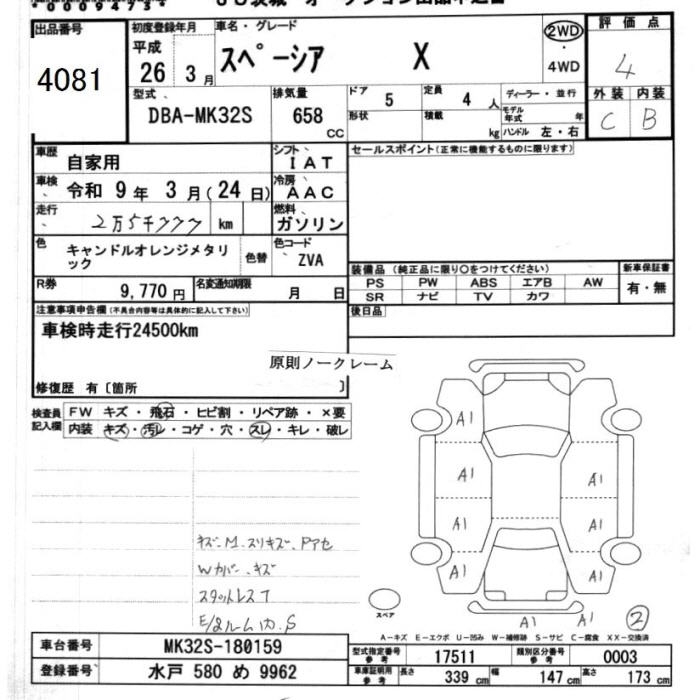 00094734
出品番号
4081
初度登録年月
平成
26 3月
車名・グレード
スペーシア X
2WD
・
4WD
評価点
4
外装 内装
C B
型式
DBA-MK32S
排気量
658
CC
ドア
5
定員
4 人
形状
積載
kg
ディーラー・並行
モデル年式 年
ハンドル 左・右
車歴 自家用
シフト
IAT
車検 令和 9年 3月(24日)
冷房
AAC
走行 2万5千777 km
燃料
ガソリン
色 キャンドルオレンジメタリック
色替
色コード
ZVA
R券 9,770 円
名変通知期限
月 日
セールスポイント(正常に機能するものに限ります)
装備品(純正品に限り○をつけてください)
新車保証書
PS PW ABS エアB AW
有・無
SR ナビ TV カワ
後日品
注意事項申告欄(不具合内容等は具体的に記入して下さい)
車検時走行24500km
原則ノークレーム
修復歴 有〔箇所 〕
検査員記入欄
FW キズ・飛石・ヒビ割・リペア跡・×要
内装 キズ・汚レ・コゲ・穴・スレ・キレ・破レ
キズ、M、スリキズ、ドアセ
Wカバー、キズ
スタットレスT
E/gルーム内、S
A1
A1 A1
A1 A1
A1 A1
A1 A1
スペア
2
A－キズ E－エクボ U－凹み W－補修跡 S－サビ C－腐食 XX－交換済
車台番号 MK32S-180159
登録番号 水戸 580 め 9962
型式指定番号 参考 17511
類別区分番号 参考 0003
車庫証明用 参考
長さ 339 cm
幅 147 cm
高さ 173 cm